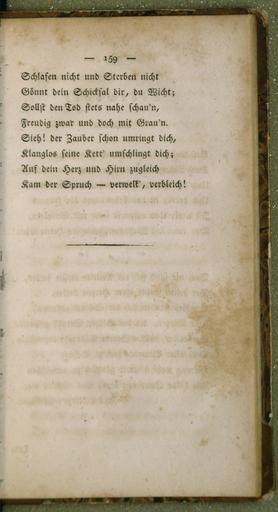 — 159 —
Schlafen nicht und Sterben nicht
Gönnt dein Schicksal dir, du Wicht;
Sollst den Tod stets nahe schau'n,
Freudig zwar und doch mit Grau'n.
Sieh! der Zauber schon umringt dich,
Klanglos seine Kett' umschlingt dich;
Auf dein Herz und Hirn zugleich
Kam der Spruch — verwelk', verbleich!